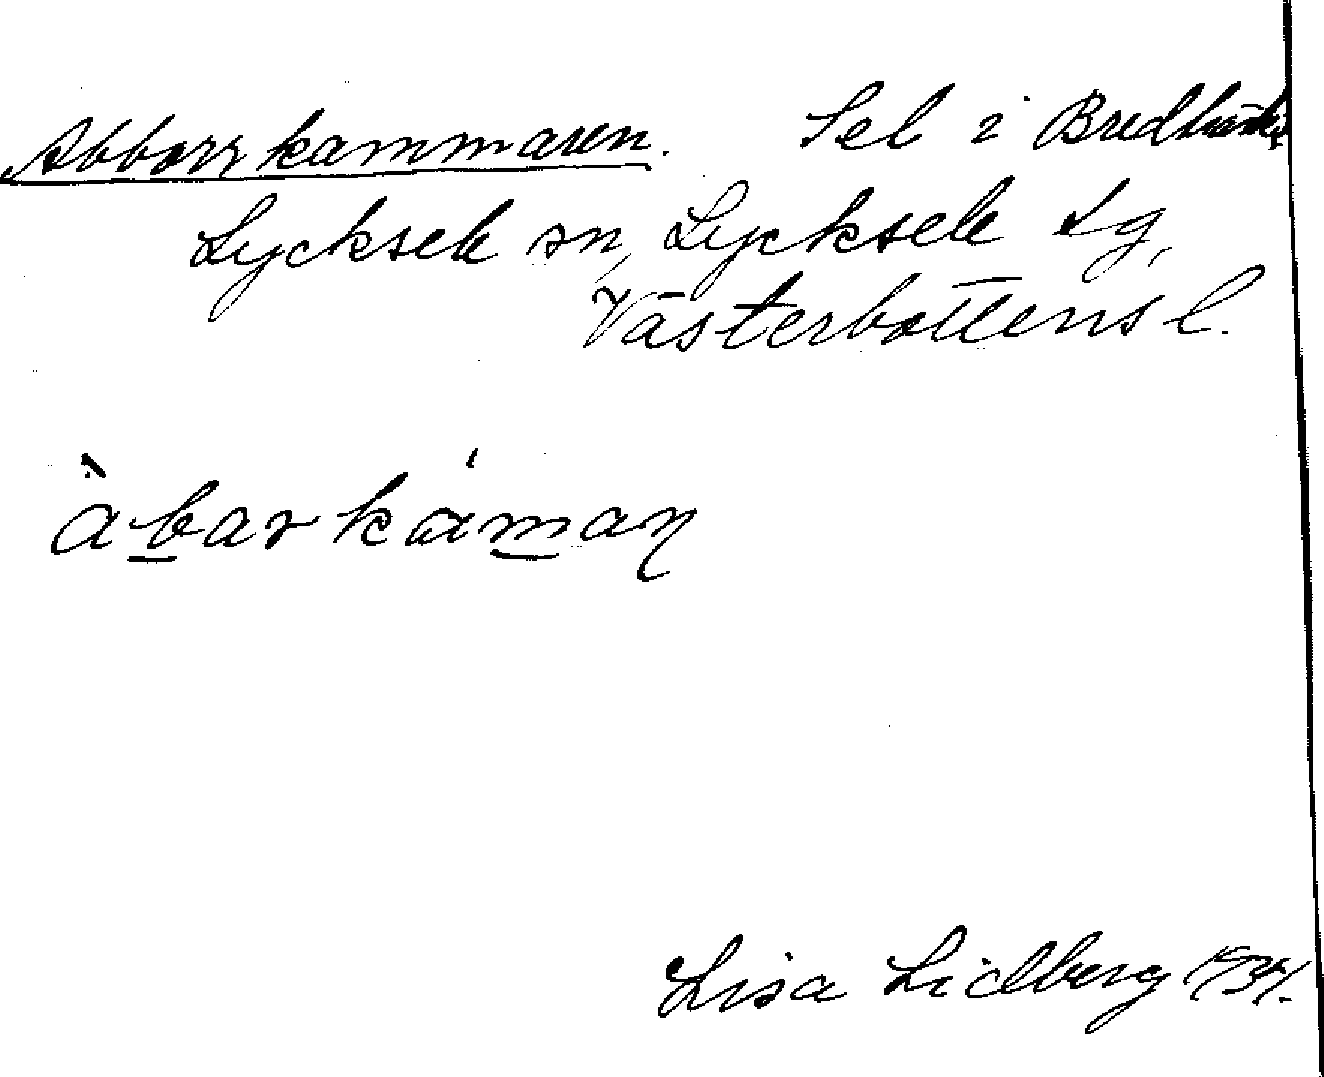 Abborrkammaren. Sel i
Lycksele sn, Lycksele Lg,
Västerbottens l.
àbarkáman
Lisa Lidberg